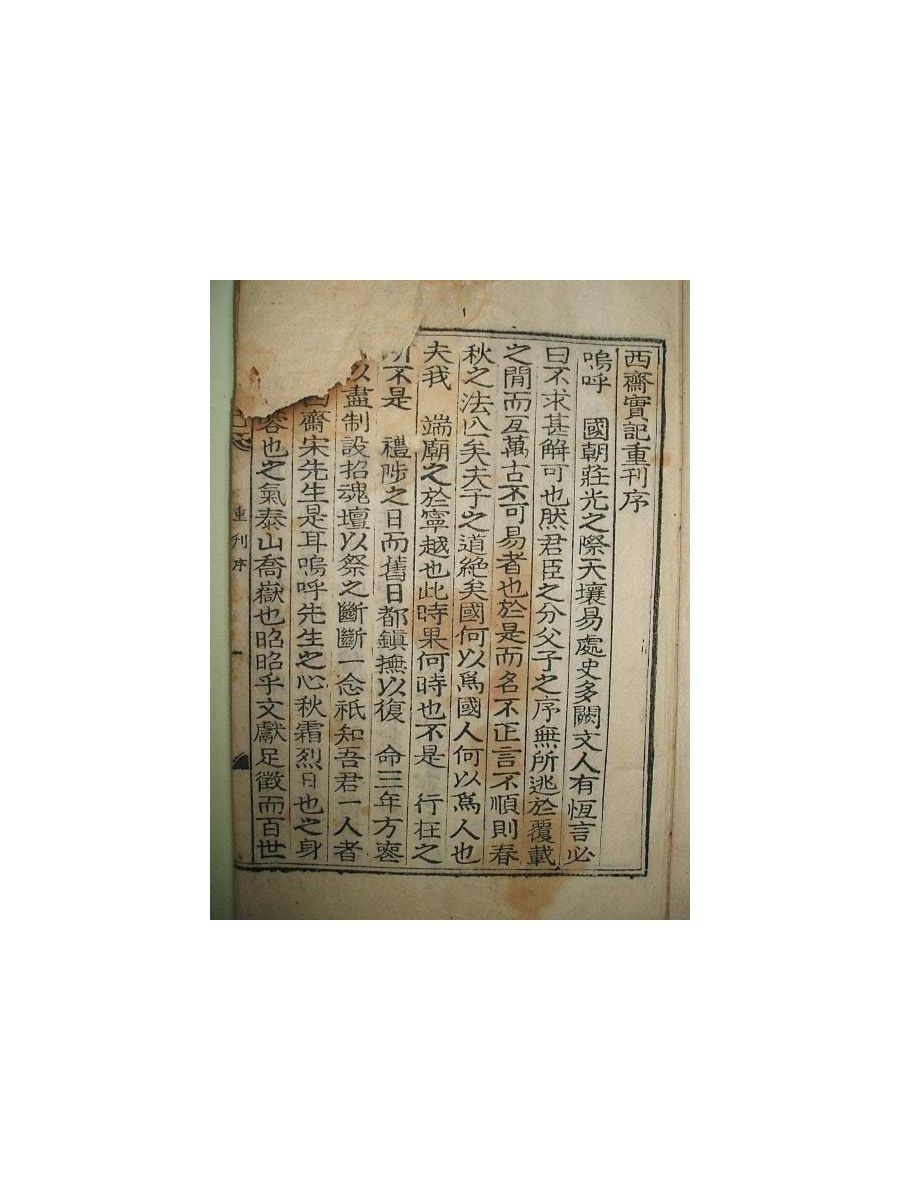 西齋實記重刊序
嗚呼 國朝莊光之際天壤易處史多闕文人有恆言必
曰不求甚解可也然君臣之分父子之序無所逃於覆載
之間而亙萬古不可易者也於是而名不正言不順則春
秋之法亾矣夫子之道絶矣國何以爲國人何以爲人也
夫我 端廟之於寧越也此時果何時也不是 行在之
所不是 禮陟之日而舊日都鎭撫以復 命三年方喪
以盡制設招魂壇以祭之斷斷一念祇知吾君一人者
西齋宋先生是耳嗚呼先生之心秋霜烈日也之身
也之氣泰山喬嶽也昭昭乎文獻足徵而百世
重刊序